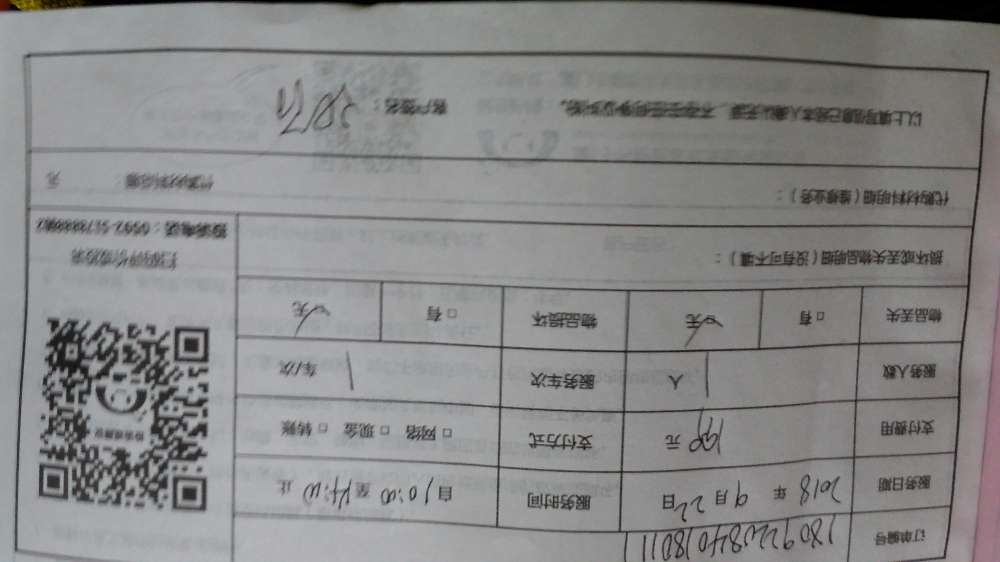 订单编号 180922084018011
服务日期 2018 年 9 月 22 日 服务时间 自 10:00 至 14:00 止
支付费用 199 元 支付方式 □ 网络 □ 现金 □ 转账
服务人数 1 人 服务车次 1 车/次
物品丢失 □ 有 □ 无 物品损坏 □ 有 □ 无
损坏或丢失物品明细(没有可不填):
扫码评价或投诉
投诉电话:
代购材料明细(维修业务): 代购材料总额: 元
以上填写信息已经本人确认无误,不存在任何争议纠纷。 客户签名: